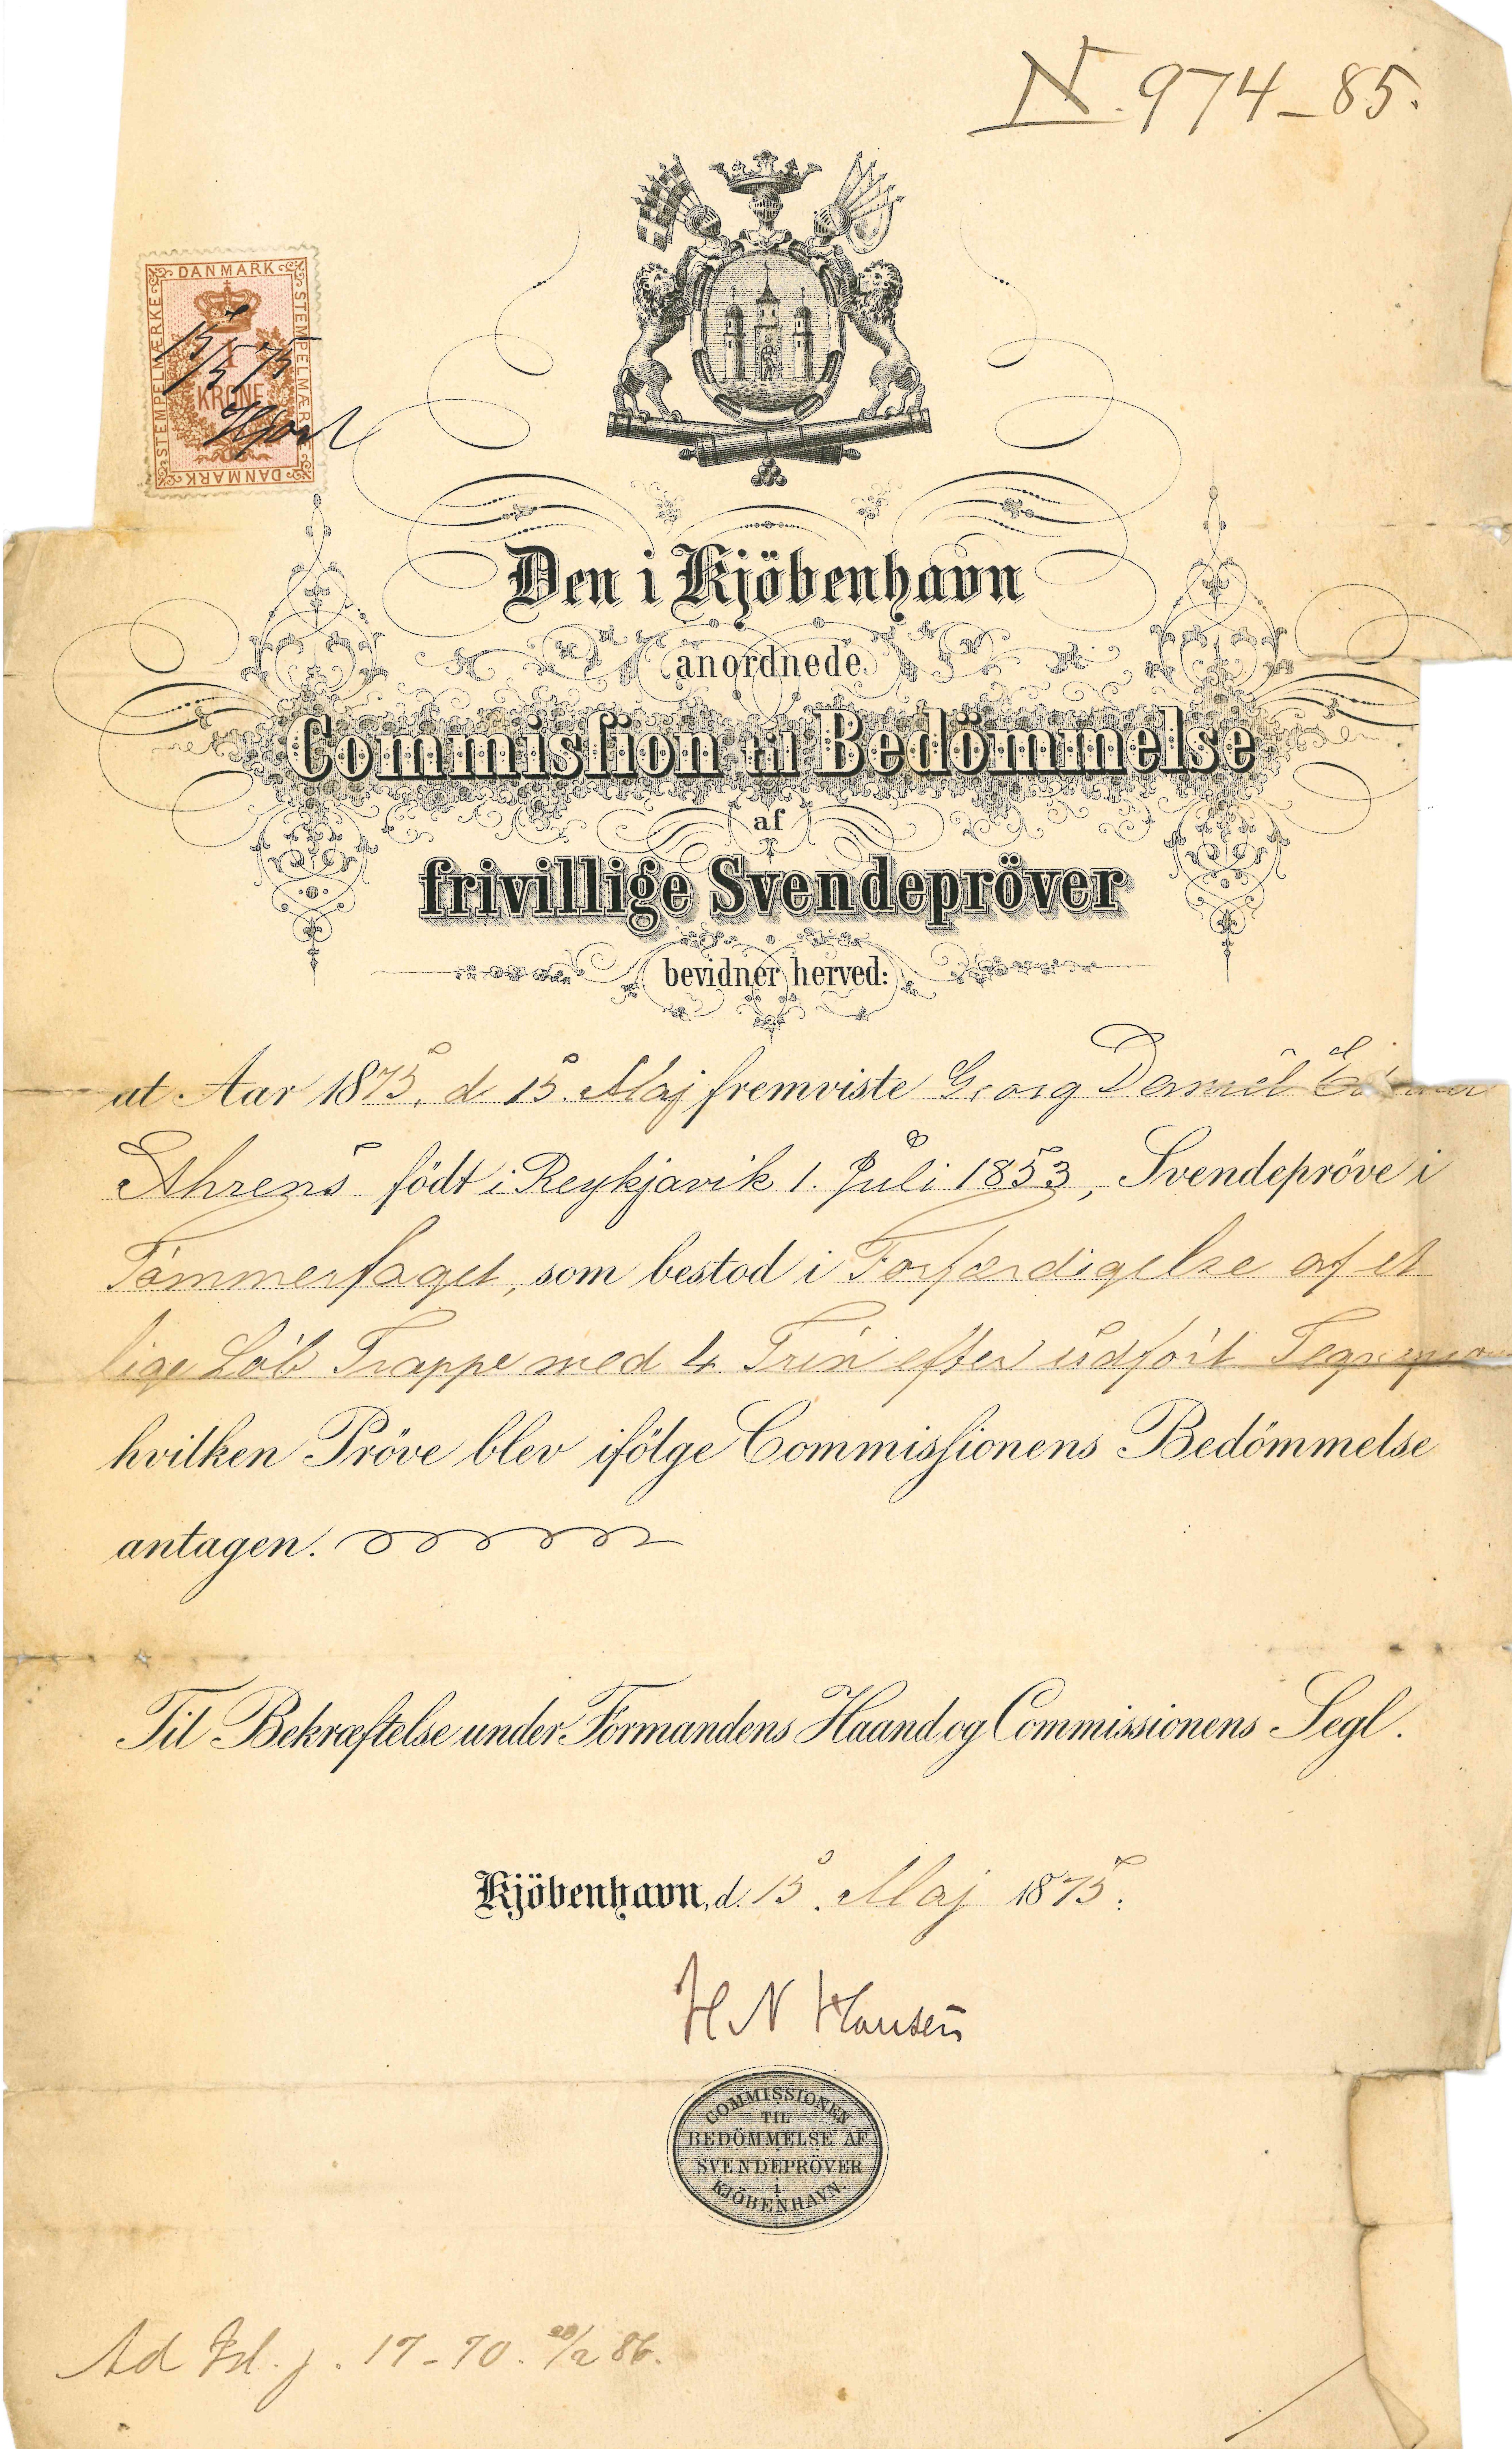 N. 974-85.
DANMARK
STEMPELMÆRKE
STEMPELMÆRKE
1
KRONE
DANMARK
15/5 75
Hjort
Den i Kjöbenhavn
anordnede
Commisſion til Bedömmelse
af
frivillige Svendepröver
bevidner herved:
at Aar 1875, d. 15. Maj fremviste Georg Daniel
Ahrens födt i Reykjavik 1. Juli 1853, Svendepröve i
Tömmerfaget, som bestod i Forfærdigelse af et
lige Löb Trappe med 4 Trin efter udfört
hvilken Pröve blev ifölge Commisſionens Bedömmelse
antagen.
Til Bekræftelse under Formandens Haand og Commissionens Segl.
Kjöbenhavn, d. 15. Maj 1875.
H N Hansen
COMMISSIONEN
TIL
BEDÖMMELSE AF
SVENDEPRÖVER
i
KJÖBENHAVN.
Ad Isl. j. 17-70. 20/2 86.